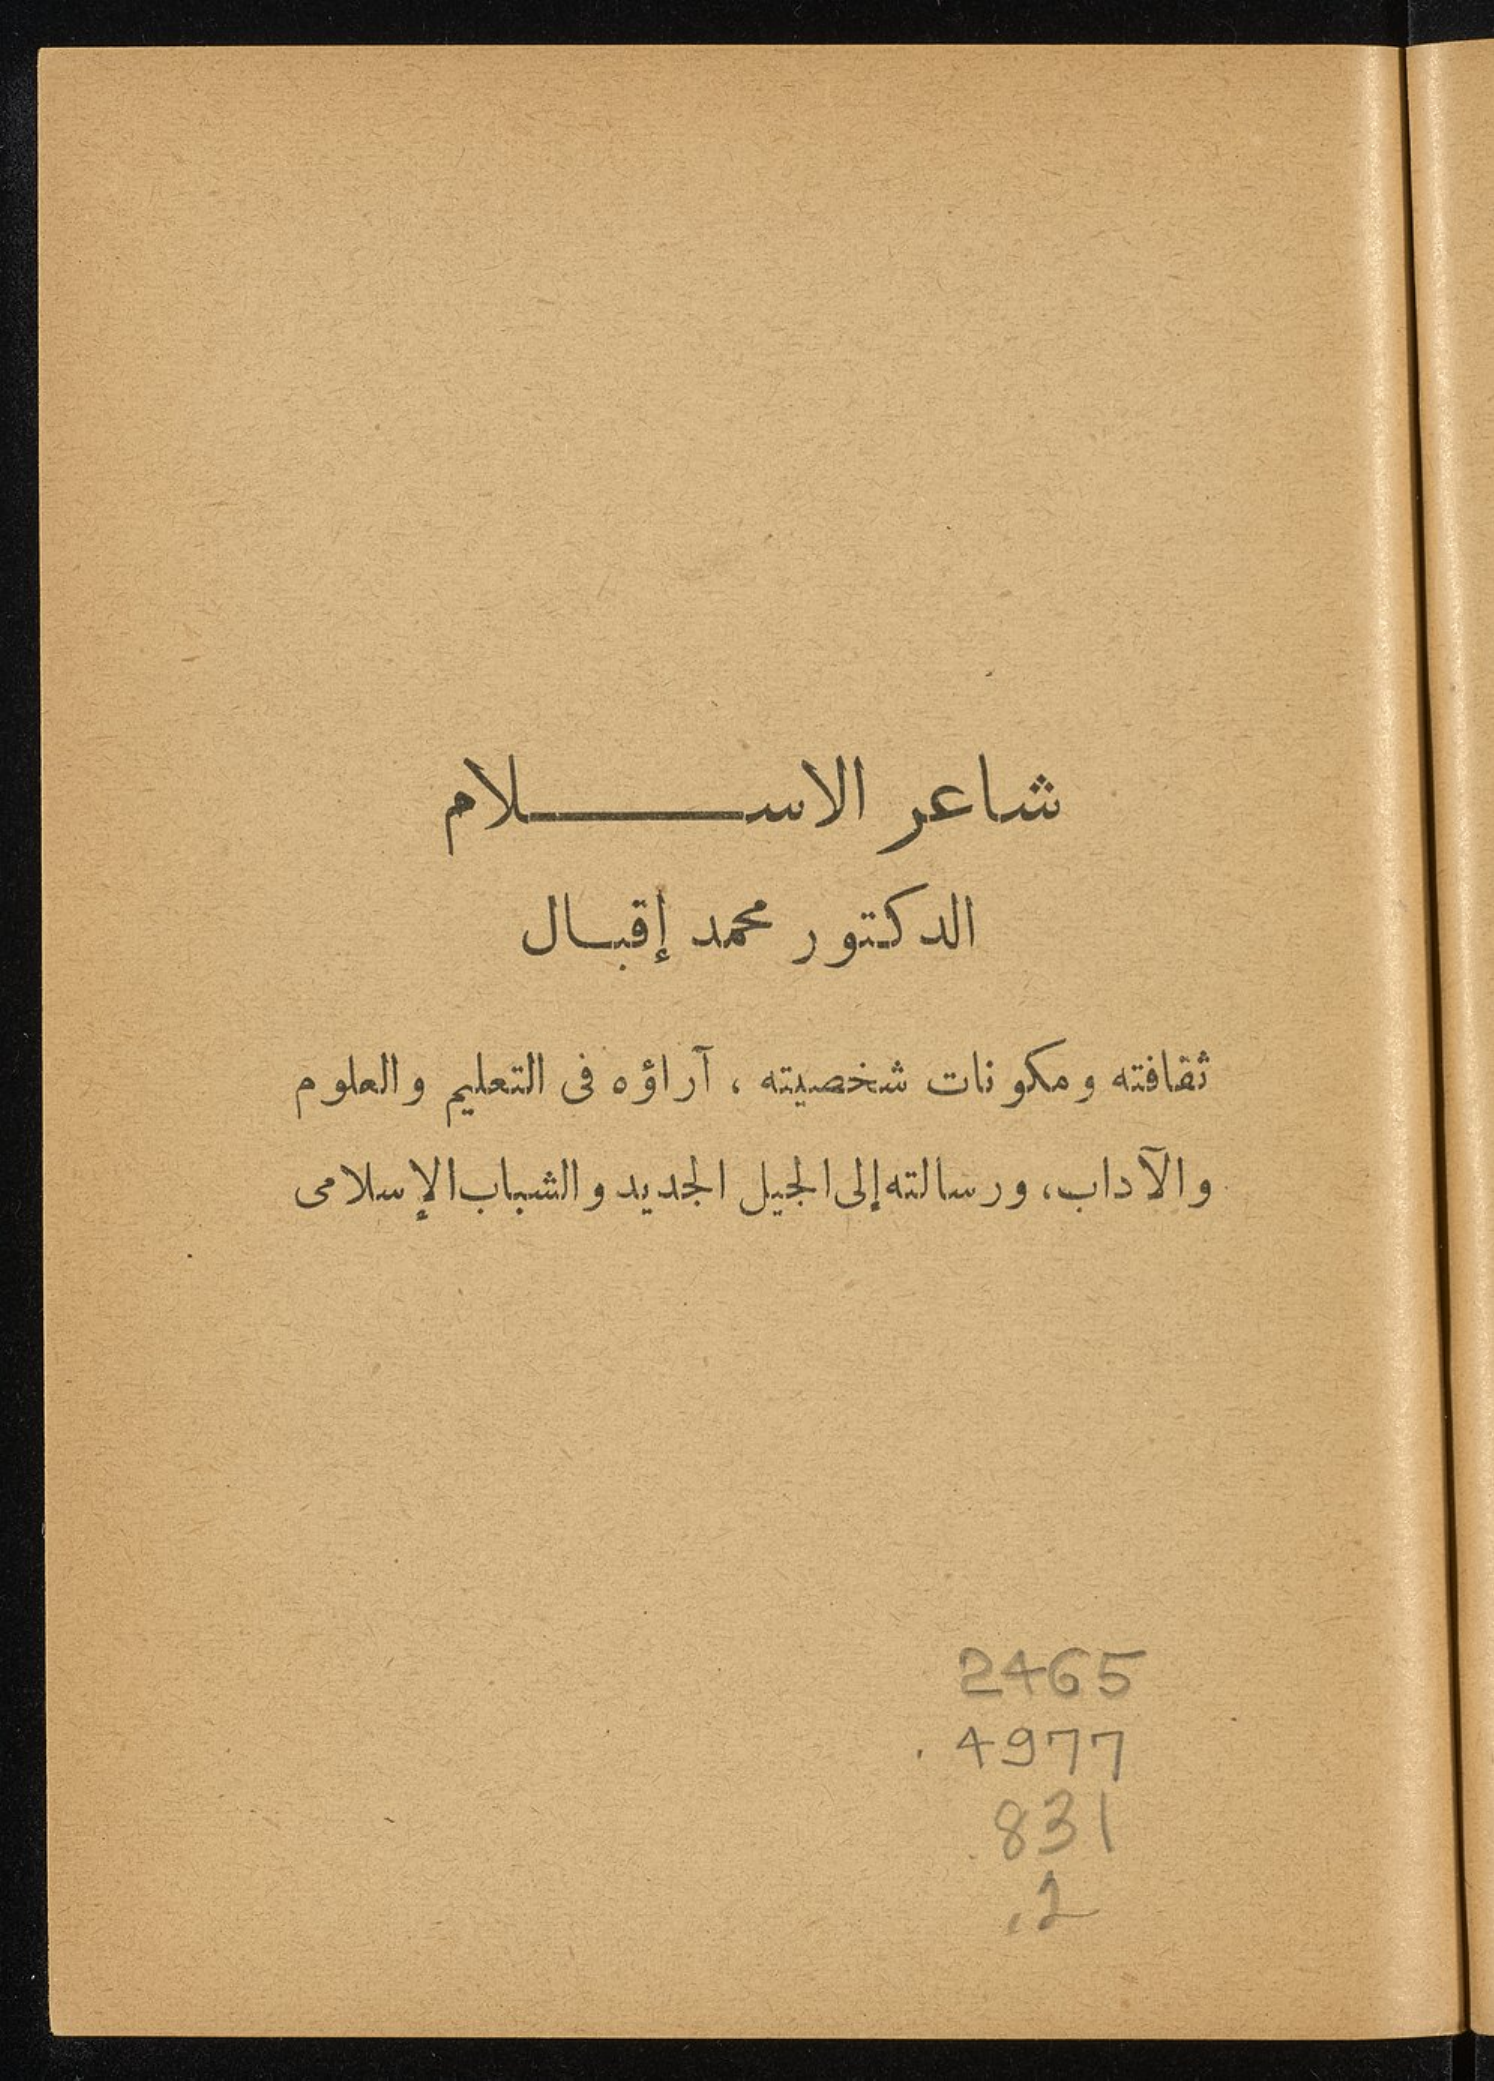 شاعر الاسـلام
الدكتور محمد إقبال
ثقافته ومكونات شخصيته ، آراؤه فى التعليم والعلوم
والآداب، ورسالته إلى الجيل الجديد والشباب الإسلامى
2465
.4977
.831
.2